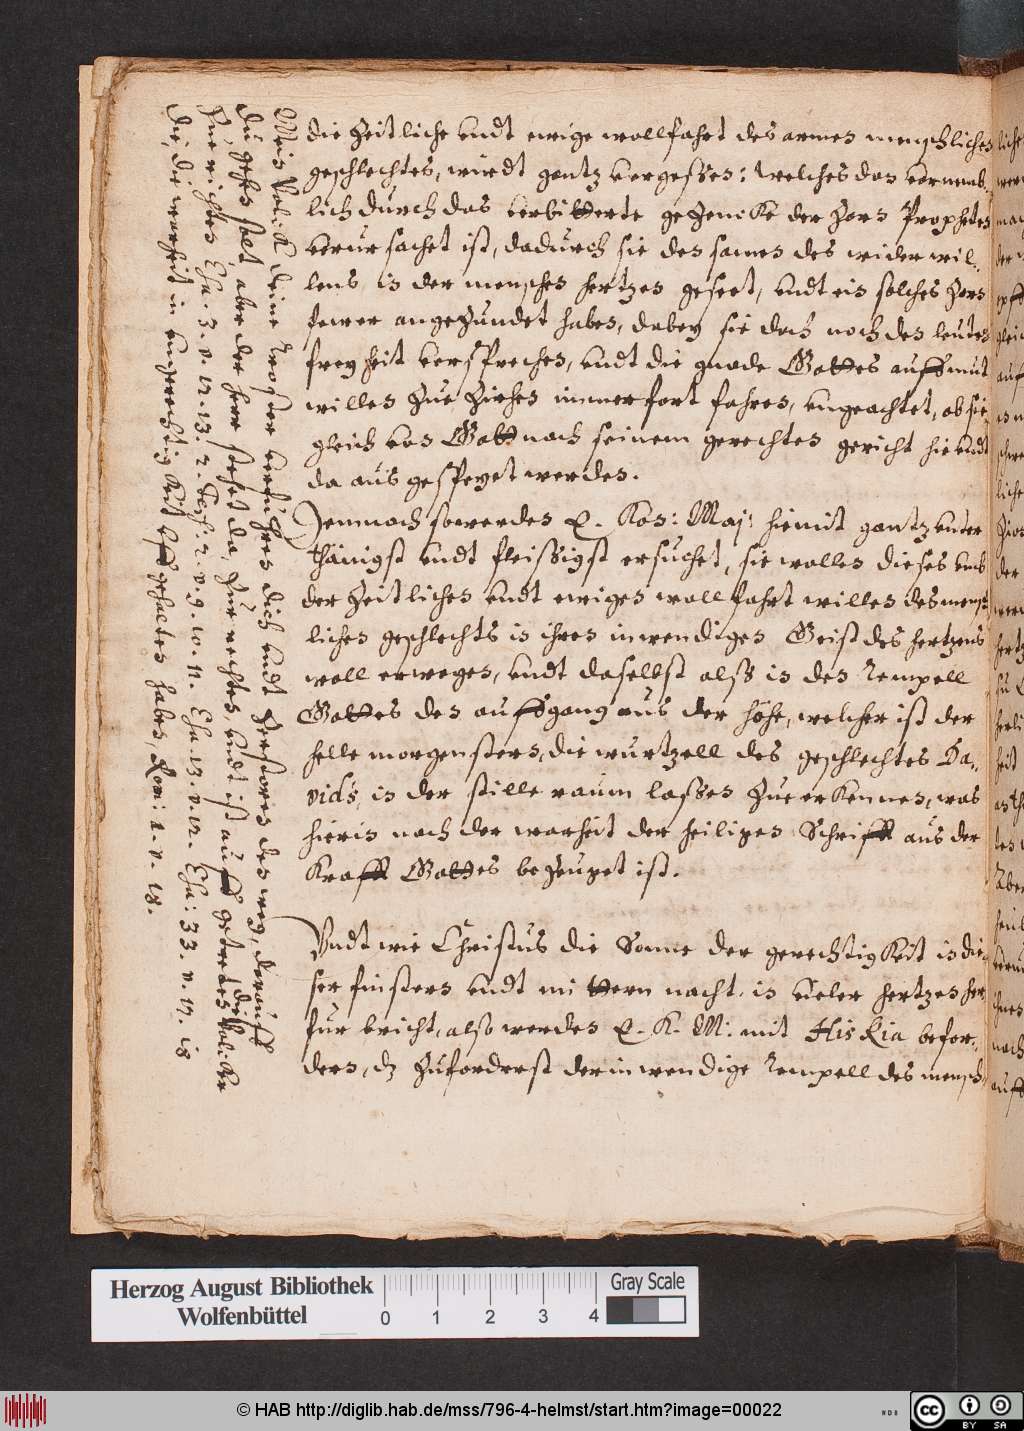 die Zeitliche undt ewige wollfahrt des armen menschlichen
geschlechtes, wirdt gantz vergessen: welches dan vornemb-
lich durch das verbitterte gezencke der Zorn Propheten
verursachet ist, dadurch sie den samen des widerwil-
lens in der menschen hertzen geseet, undt ein solches Zorn
fewer angezundet haben, dabey sie doch noch den leuten
freyheit versprechen, undt die gnade Gottes auff mut
willen Zue Ziehen immer fort fahren, ungeachtet, ob sie
gleich von Gott nach seinem gerechten gericht hie undt
da aus gespeyet werden.
Demnach so werden E. Kön: Maj: hiemit gantz unter
thänigst undt fleissigst ersuchet, sie wollen dieses umb
der Zeitlichen undt ewigen wollfahrt willen des mensch-
lichen geschlechts in ihren inwendigen Geist des hertzens
woll erwegen, undt daselbst alss in den Tempell
Gottes den auffgang aus der höhe, welcher ist der
helle morgenstern, die wurtzell des geschlechtes Da-
vids, in der stille raum lassen Zue erkennen, was
hierin nach der warheit der heiligen Schrifft aus der
Krafft Gottes bezeuget ist.
Undt wie Christus die Sonne der gerechtigkeit in die-
ser finstern undt mitternacht in vieler hertzen her-
fur bricht, also werden E. K. M: mit Hiskia befor-
dern, dz Zuforderst der inwendige Tempell des mensch-
Mein Volck deine Tröster verfuhren dich undt Zerstören den weg, darauff
du gehen solt, aber der herr stehet da, Zue rechten, undt ist auff getreten die Völcker
Zue richten, Esa. 3. v. 12. 13. 2. Tess: 2. v. 9. 10. 11. Esa. 13. v. 11. Esa: 33. v. 12. in
die, die warheit in ungerechtigkeit auff gehalten haben, Rom: 1. v. 18.
Herzog August Bibliothek
Wolfenbüttel
0 1 2 3 4
Gray Scale
© HAB http://diglib.hab.de/mss/796-4-helmst/start.htm?image=00022
cc BY SA